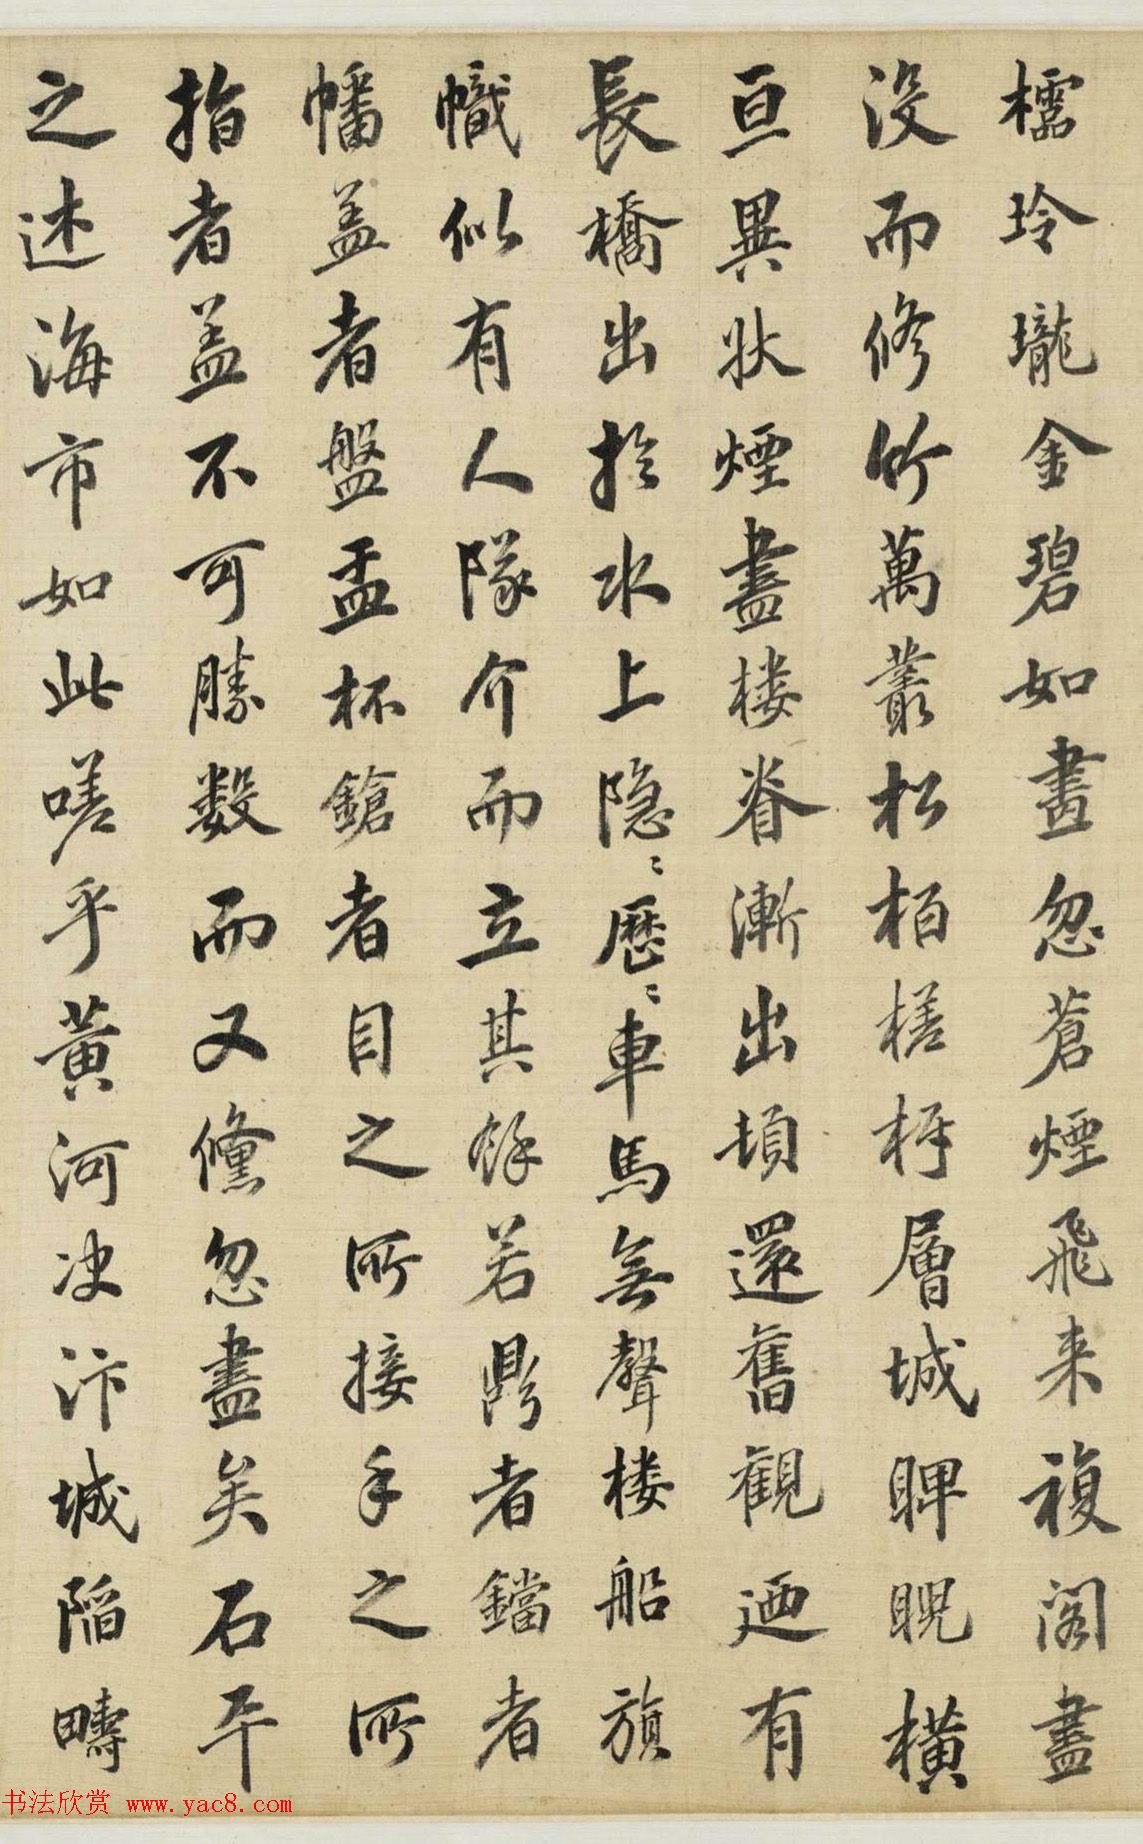 櫺玲瓏金碧如畫忽蒼煙飛来複閣盡
没而修竹萬叢松栢槎枒層城睥睨橫
亘異狀煙盡楼脊漸出頃還舊觀迺有
長橋出扵水上隐〻歴〻車馬無聲楼船旗
幟似有人隊介而立其餘若鼎者鐺者
幡盖者盤盂杯鎗者目之所接手之所
指者盖不可勝数而又儵忽盡矣石午
之述海市如此嗟乎黄河决汴城陷疇
书法欣赏 www.yac8.com